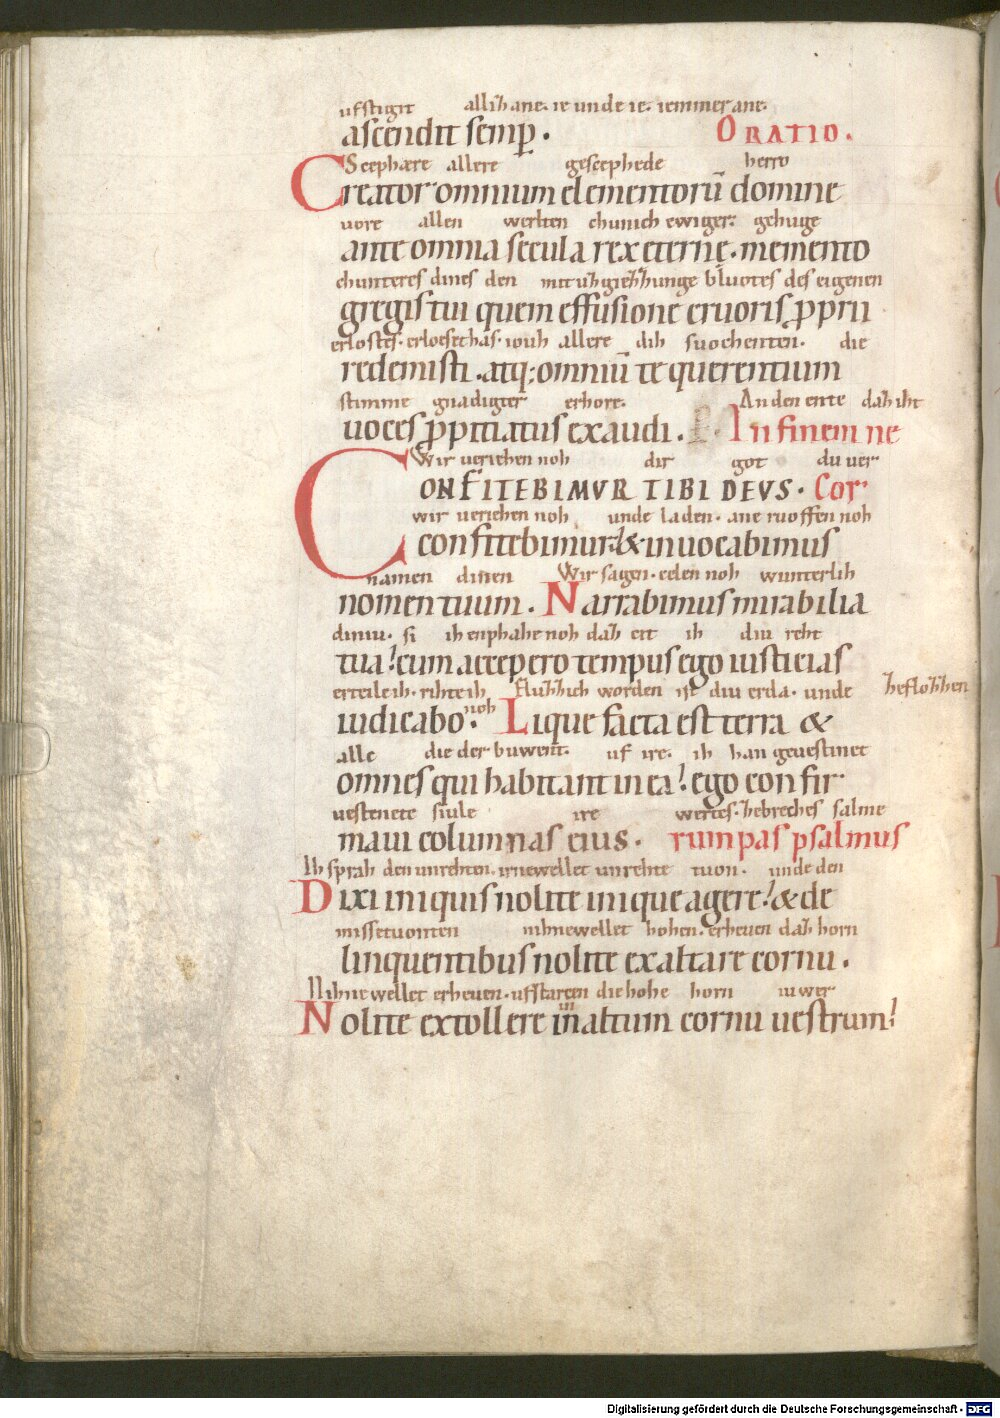 ufstigit allih ane. ie unde ie. iemmer ane.
ascendit semꝑ. ORATIO.
Scephære allere gescephede herro
Creator omnium elementorū domine
vore allen werlten chunich ewiger. gehuge
ante omnia secula rex eternę. memento
chunteres dines den mit bluotes des eigenen
gregis tui quem effusione cruoris ꝓprii
erlostes. allere dih suochenten. die
redemisti. atq; omniū te querentium
stimme gnadigter erhore. An den ente
uoces ꝓpitiatus exaudi. In finem ne
Wir veriehen noh dir got du ver
CONFITEBIMVR TIBI DEVS. Cor
wir veriehen noh unde laden. ane ruoffen noh
confitebimur & inuocabimus
namen dinen Wir sagen. celen noh wunterlih
nomen tuum. Narrabimus mirabilia
diniu. si ih enphahe noh dah cit ih diu reht
tua! cum accepero tempus ego iusticias
erteile ih. rihte ih worden ist diu erda. unde
iudicabo. noh Lique facta est terra &
alle die der buwent. uf ire. ih han gevestinet
omnes qui habitant in ea! ego confir
vestenete siule ire werces. salme
maui columnas eius. rumpas psalmus
Ih sprah den unrehten. irnewellet unrehte tuon. unde den
Dixi iniquis nolite inique agere! & de
missetuonten nihnewellet hohen. erheven dah horn
linquentibus nolite exaltare cornu.
Nihnewellet erheven. die hohe horn iuwer
Nolite extollere in altum cornu uestrum!
Digitalisierung gefördert durch die Deutsche Forschungsgemeinschaft - DFG